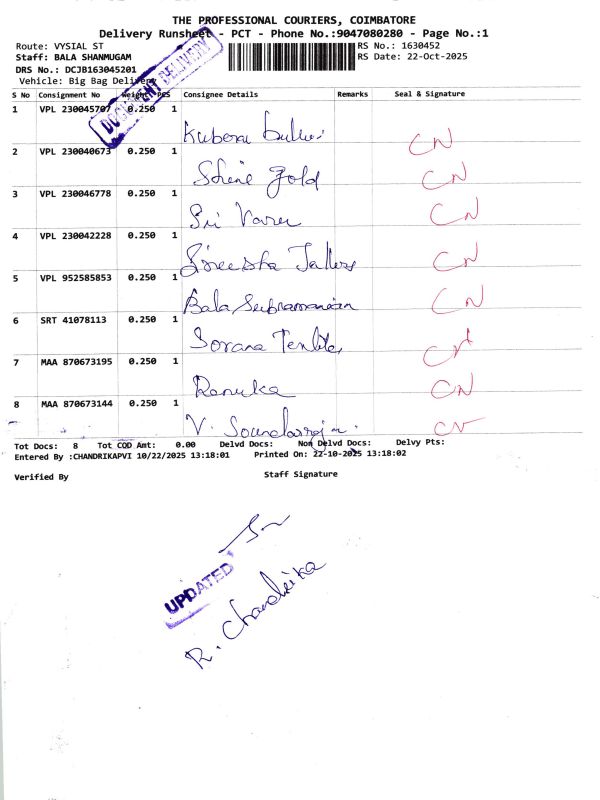 THE PROFESSIONAL COURIERS, COIMBATORE
Delivery Runsheet - PCT - Phone No.:9047080280 - Page No.:1
Route: VYSIAL ST
RS No.: 1630452
Staff: BALA SHANMUGAM
RS Date: 22-Oct-2025
DRS No.: DCJB163045201
Vehicle: Big Bag Delivery
DOCUMENT DELIVERY
S No Consignment No Weight PCS Consignee Details Remarks Seal & Signature
1 VPL 230045707 0.250 1
Kubera CN
2 VPL 230040673 0.250 1
Shine Gold CN
3 VPL 230046778 0.250 1
Sri CN
4 VPL 230042228 0.250 1
CN
5 VPL 952585853 0.250 1
Bala Subramanian CN
6 SRT 41078113 0.250 1
CN
7 MAA 870673195 0.250 1
Renuka CN
8 MAA 870673144 0.250 1
V. Soundarrajan. CN
Tot Docs: 8 Tot COD Amt: 0.00 Delvd Docs: Non Delvd Docs: Delvy Pts:
Entered By :CHANDRIKAPVI 10/22/2025 13:18:01 Printed On: 22-10-2025 13:18:02
Verified By Staff Signature
UPDATED
R. Chandrika